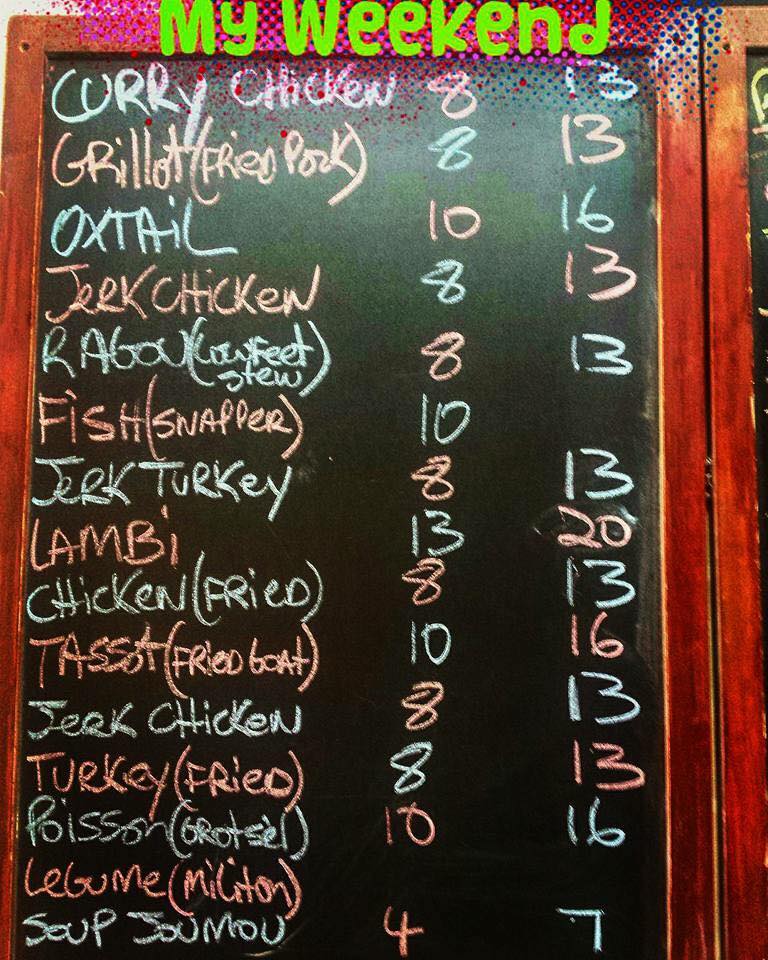 My Weekend
CURRY CHICKEN 8 13
GRillot (FRieD PORK) 8 13
OXTAIL 10 16
JERK CHiCKEN 8 13
RAGOU (COWFeet stew) 8 13
FiSH (SNAPPER) 10
JERK TURKey 8 13
LAMBi 13 20
CHiCKEN (FRiED) 8 13
TASSOt (FRieD GOAt) 10 16
JeRK CHiCKEN 8 13
TURKey (FRieD) 8 13
POISSON (GROtSEL) 10 16
LeGUMe (MiLiTON)
SOUP JOUMOU 4 7